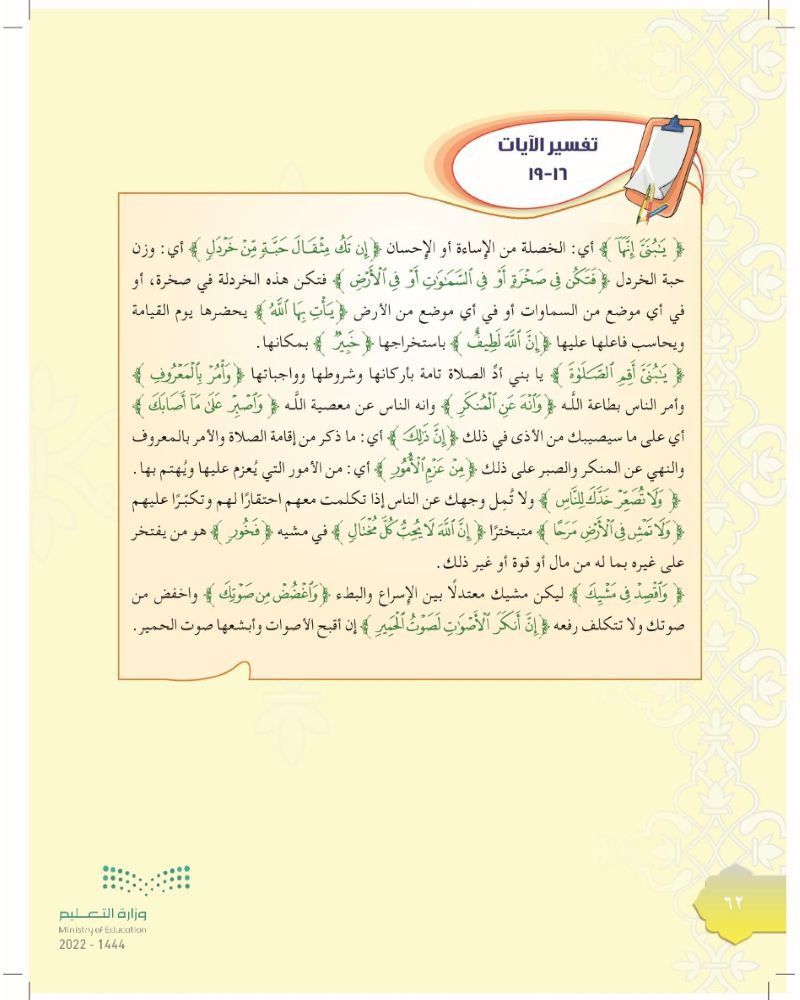 تفسير الآيات
١٦-١٩
﴿ يَٰبُنَيَّ إِنَّهَآ ﴾ أي: الخصلة من الإساءة أو الإحسان ﴿ إِن تَكُ مِثۡقَالَ حَبَّةٖ مِّنۡ خَرۡدَلٖ ﴾ أي: وزن
حبة الخردل ﴿ فَتَكُن فِي صَخۡرَةٍ أَوۡ فِي ٱلسَّمَٰوَٰتِ أَوۡ فِي ٱلۡأَرۡضِ ﴾ فتكن هذه الخردلة في صخرة، أو
في أي موضع من السماوات أو في أي موضع من الأرض ﴿ يَأۡتِ بِهَا ٱللَّهُ ﴾ يحضرها يوم القيامة
ويحاسب فاعلها عليها ﴿ إِنَّ ٱللَّهَ لَطِيفٌ ﴾ باستخراجها ﴿ خَبِيرٞ ﴾ بمكانها.
﴿ يَٰبُنَيَّ أَقِمِ ٱلصَّلَوٰةَ ﴾ يا بني أدِّ الصلاة تامة بأركانها وشروطها وواجباتها ﴿ وَأۡمُرۡ بِٱلۡمَعۡرُوفِ ﴾
وأمر الناس بطاعة اللَّـه ﴿ وَٱنۡهَ عَنِ ٱلۡمُنكَرِ ﴾ وانه الناس عن معصية اللَّـه ﴿ وَٱصۡبِرۡ عَلَىٰ مَآ أَصَابَكَ ﴾
أي على ما سيصيبك من الأذى في ذلك ﴿ إِنَّ ذَٰلِكَ ﴾ أي: ما ذكر من إقامة الصلاة والأمر بالمعروف
والنهي عن المنكر والصبر على ذلك ﴿ مِنۡ عَزۡمِ ٱلۡأُمُورِ ﴾ أي: من الأمور التي يُعزم عليها ويُهتم بها.
﴿ وَلَا تُصَعِّرۡ خَدَّكَ لِلنَّاسِ ﴾ ولا تُمِل وجهك عن الناس إذا تكلمت معهم احتقارًا لهم وتكبّرًا عليهم
﴿ وَلَا تَمۡشِ فِي ٱلۡأَرۡضِ مَرَحًا ﴾ متبخترًا ﴿ إِنَّ ٱللَّهَ لَا يُحِبُّ كُلَّ مُخۡتَالٖ ﴾ في مشيه ﴿ فَخُورٖ ﴾ هو من يفتخر
على غيره بما له من مال أو قوة أو غير ذلك.
﴿ وَٱقۡصِدۡ فِي مَشۡيِكَ ﴾ ليكن مشيك معتدلًا بين الإسراع والبطء ﴿ وَٱغۡضُضۡ مِن صَوۡتِكَ ﴾ واخفض من
صوتك ولا تتكلف رفعه ﴿ إِنَّ أَنكَرَ ٱلۡأَصۡوَٰتِ لَصَوۡتُ ٱلۡحَمِيرِ ﴾ إن أقبح الأصوات وأبشعها صوت الحمير.
٦٢
وزارة التعليم
Ministry of Education
2022 - 1444